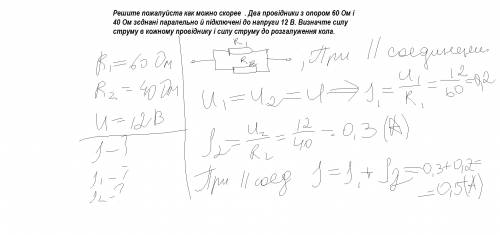 Решите пожалуйста как можно скорее . Два провідники з опором 60 Ом і
40 Ом зєднані паралельно й підключені до напруги 12 В. Визначте силу
струму в кожному провіднику і силу струму до розгалуження кола.
R₁=60 Ом
R₂=40 Ом
U=12В
J-?
J₁-?
J₂-?
R₁
R₂
, При || соединении
U₁=U₂=U⟹J₁=U₁/R₁=12/60=0,2
J₂=U₂/R₂=12/40=0,3(A)
При || соед J=J₁+J₂=0,3+0,2=
=0,5(A)